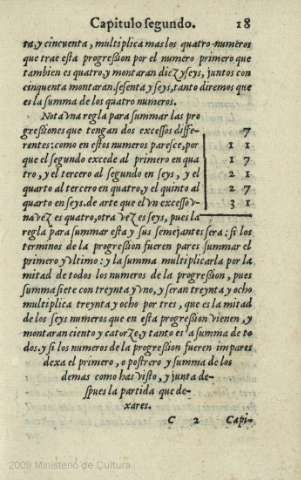 Capitulo segundo. 18
ta, y cincuenta, multiplica mas los quatro numeros
que trae esta progression por el numero primero que
tambien es quatro, y montaran diez y seys, juntos con
cinquenta montaran. sesenta y seys, tanto diremos que
es la summa de los quatro numeros.
Nota vna regla para summar las pro
gressiones que tengan dos excessos diffe- 7
rentes: como en estos numeros paresce, por 11
que el segundo excede al primero en qua 17
tro, y el tercero al segundo en seys, y el 21
quarto al tercero en quatro, y el quinto al 27
quarto en seys. de arte que el vn excesso v- 31
na vez es quatro, otra vez es seys, pues la
regla para summar esta y sus semejantes sera: si los
terminos de la progression fueren pares summar el
primero y vltimo: y la summa multiplicarla por la
mitad de todos los numeros de la progression, pues
summa siete con treynta y vno, y seran treynta y ocho
multiplica treynta y ocho por tres, que es la mitad
de los seys numeros que en esta progression vienen, y
montaran ciento y catorze, y tanto es la summa de to
dos. y si los numeros de la progression fueren impares
dexa el primero, o postrero y summa de los
demas como has visto, y junta de-
spues la partida que de-
xares.
C 2 Capi-
2009 Ministerio de Cultura